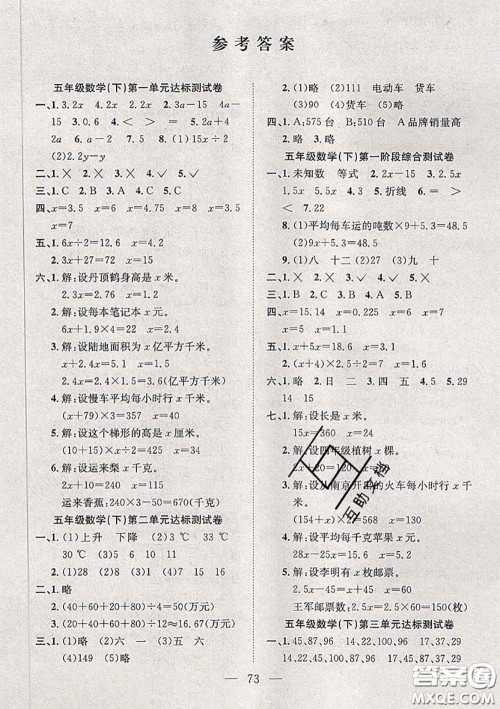 参考答案
五年级数学(下)第一单元达标测试卷
一、1. 3.2x 4.2x 2. 3a-15 4a-
15 3. 0.6 4. < > = < 5. 4+
2a 6. a-2 7. 8 8. (1)15x÷2
(2)2.2y-y
二、1. × 2. × 3. × 4. × 5. √
三、1. C 2. B 3. A 4. C 5. A
四、x=3.5 x=6 x=24
x=13.5 x=4 x=9.2
五、1. 6x÷2=12.6 x=4.2
2. 3x+27=72 x=15
六、1. 解:设丹顶鹤身高是x米。
2.3x=2.76 x=1.2
2. 解:设每本笔记本x元。
6x+1.9×4=22 x=2.4
3. 解:设陆地面积为x亿平方千米。
2.4x+x=5.1 x=1.5
2.4×1.5=3.6(亿平方千米)
4. 解:设慢车平均每小时行x千米。
(x+80)×3=357 x=39
5. 解:设这个梯形的高是x厘米。
(18+27)x÷2=810 x=36
6. 解:设运来梨x千克。
(x+240)×3=1270-x x=310
运来香蕉:240×3-50=550(千克)
五年级数学(下)第二单元达标测试卷
一、1. (1)上升 下降 (2)3 6
33 ℃ (3)15 ℃ (4)30 ℃
2. 8 21 15 7
二、1. 略
2. (40+60+80+20)÷4=50(万元)
3. (20+40+40+60+60+70)×
2÷12≈48.3(万元)
三、1. (1)略 (2)六 一 (3)六
(4)149 (5)略
2. (1)略 (2)111 电动车 货车
(3)90 (4)货车 (5)略
四、1. A:575台 B:510台 A品牌销量高
2. 略 3. 略 4. 略
五年级数学(下)第一阶段综合测试卷
一、1. 未知数 等式 2. x-15 3. 1.2x
1.5x 5x-2.3x 4. 3.5 5. 折线
6. < < > < 7. 9
8. (1)平均每车运的吨数×9+5.3=48.5
(2)9x+5.3=48.5
9. (1)八 十二 (2)27 (3)九 十
二、1. × 2. × 3. √ 4. × 5. √
三、1. C 2. C 3. B 4. B
四、x=15 x=0.225 x=6 x=7
x=1.14 x=0.6
五、1. x+5x=27 x=4.5
2. x÷0.15=24 x=3.6
六、1. 略 2. 日 二 3. 四 五 4. 5 5. 29
14 15 6. 略
七、1. 解:设长是x米。
15x=360 x=24
2. 解:设四年级植树x棵。
2x+20=120 x=
3. 解:设南京开出的火车每小时行x千米。
(154+x)×=
4. 解:设每千克苹果x元。
28x-25x=15.9 x=5.3
5. 解:设李明有x枚邮票。
2.5x-x=36 x=24
王军邮票数:2.5x=2.5×24=60
五年级数学(下)第三单元达标测试卷
一、1. 45,87,96 14,22,100,96 17,37,29
14,22,45,87,100,96 17,37,29
互助文档
73
答案圈
MXQE.COM